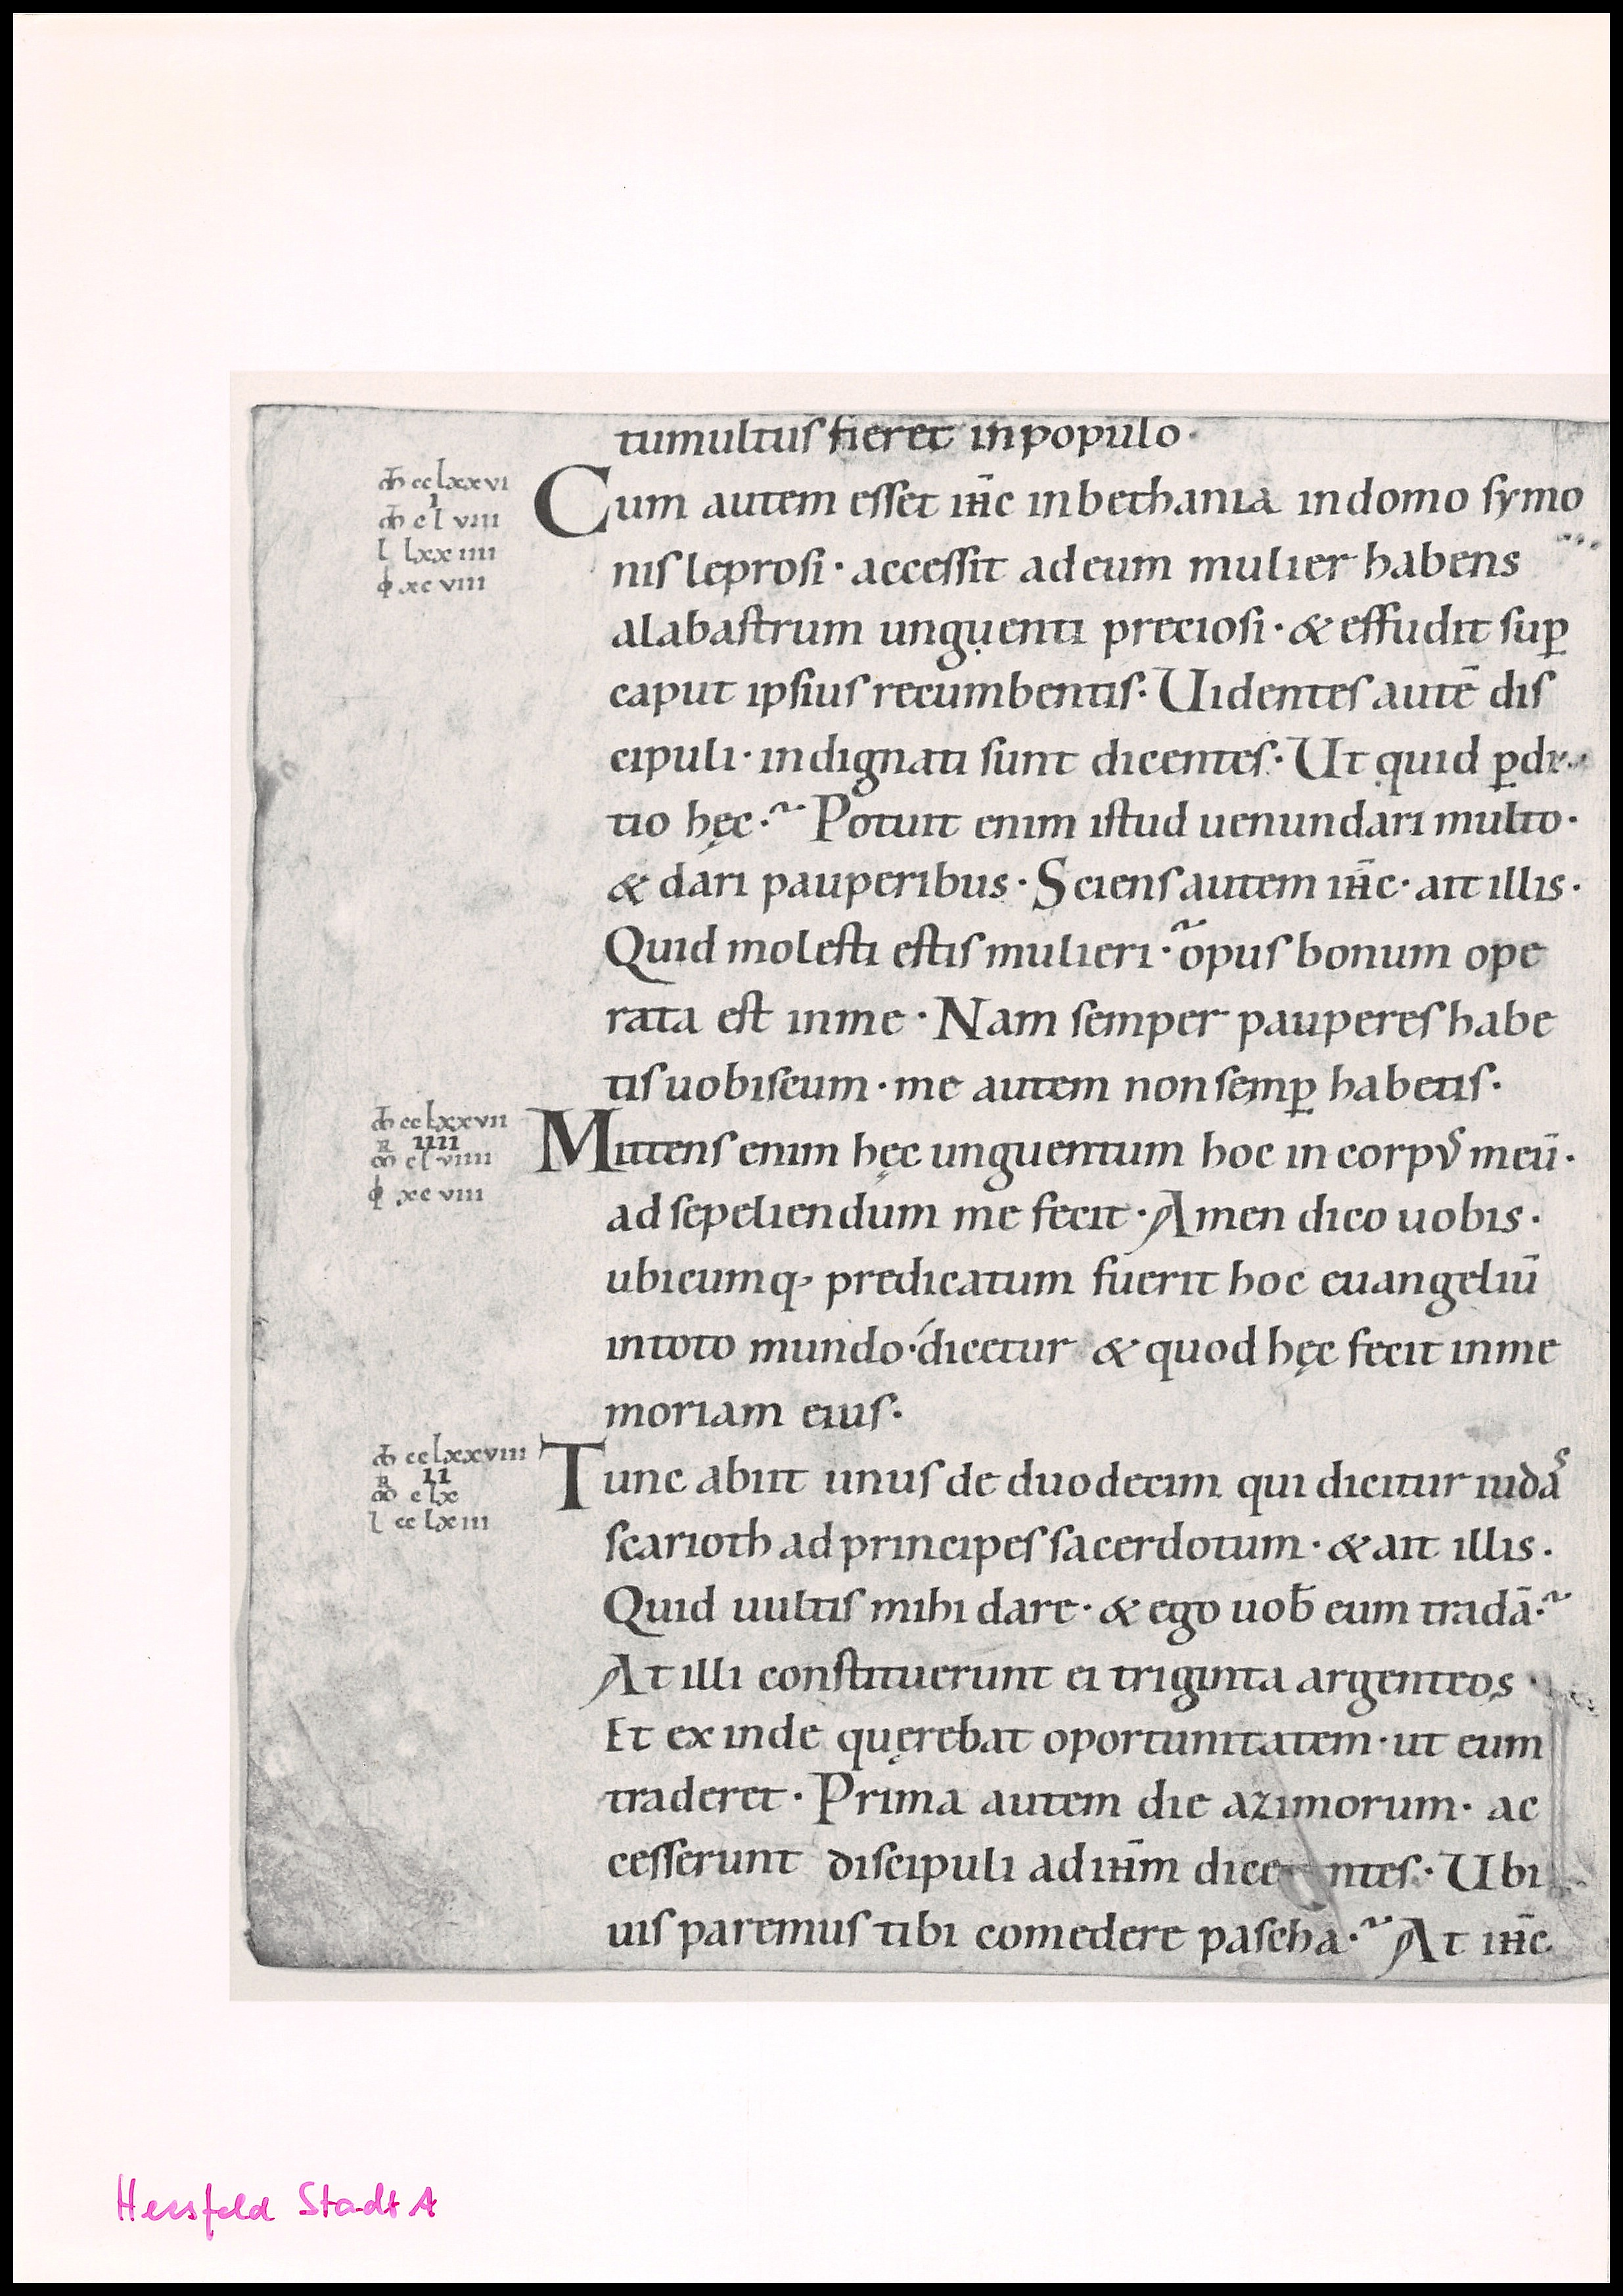 tumultus fieret in populo·
ꝏ cclxxvi
i
ꝏ clviii
l lxxiiii
ϕ xcviii
Cum autem esset ih̄c in bethania in domo symo
nis leprosi· accessit ad eum mulier habens
alabastrum ungụenti preciosi· & effudit sup̱
caput ipsius recumbentis· Uidentes autē dis
cipuli· indignati sunt dicentes· Ut quid ꝑdi
tio hęc·~ Potuit enim istud uenundari multo·
& dari pauperibus· Sciens autem ih̄c· ait illis·
Quid molesti estis mulieri·~ opus bonum ope
rata est in me· Nam semper pauperes habe
tis uobiscum· me autem non semꝑ habetis·
ꝏ cclxxvii
R iiii
ꝏ clviiii
ϕ xcviii
Mittens enim hęc unguentum hoc in corpꝰ meū·
ad sepeliendum me fecit· Amen dico uobis·
ubicumq; predicatum fuerit hoc euangeliū
in toto mundo· dicetur & quod hęc fecit in me
moriam eius·
ꝏ cclxxviii
R ii
ꝏ clx
l cclxiii
Tunc abiit unus de duodecim qui dicitur iudaˢ
scarioth ad principes sacerdotum· & ait illis·
Quid uultis mihi dare· & ego uob̄ eum tradā·~
At illi constituerunt ei triginta argenteos·
Et exinde quęrebat oportunitatem· ut eum
traderet· Prima autem die azimorum· ac
cesserunt discipuli ad ih̄m dicentes· Ubi
uis paremus tibi comedere pascha·~ At ih̄c
Hersfeld StadtA